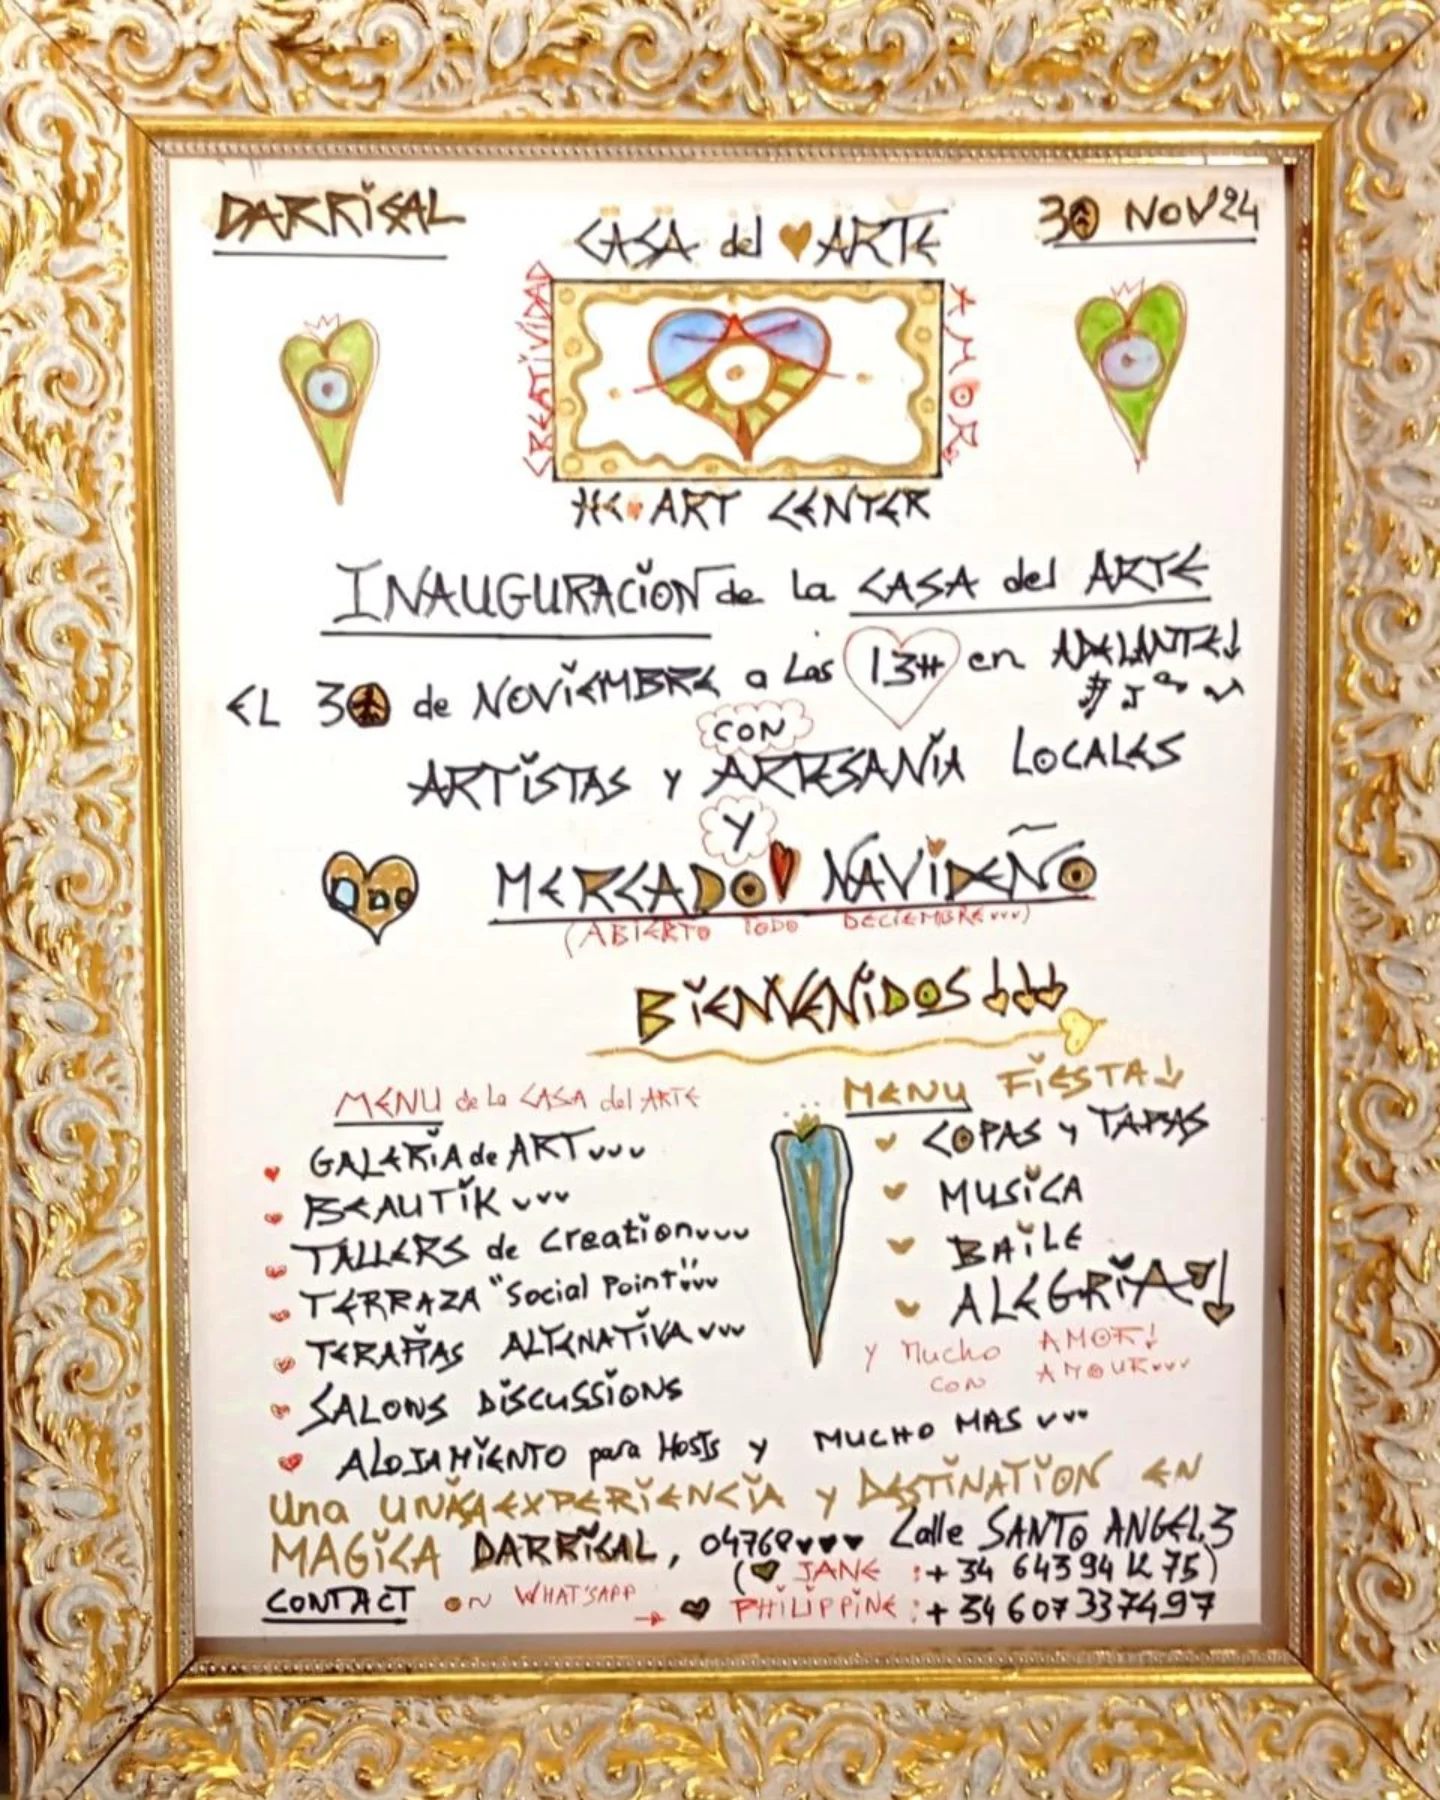 DARRiCAL
30 NOV 24
CASA del ARTE
CREATIVIDAD
AMOR
HE ART CENTER
INAUGURACION de la CASA del ARTE
EL 30 de NOViEMBRE a las 13H en ADELANTE!
CON
ARTiSTAS y ARTESANiA LOCALES
y
MERCADO NAViDEÑO
(ABiERTO TODO DECiEMBRE)
BiENVENiDOS!!!
MENU de la CASA del ARTE
GALERiA de ART
BEAUTiK
TALLERS de Creation
TERRAZA "Social Point"
TERAPiAS ALTENATiVA
SALONS DiSCUSSiONS
ALOJAMiENTO para Hosts y MUCHO MAS
MENU FiESTA!
COPAS y TAPAS
MUSiCA
BAiLE
ALEGRiA!
y Mucho AMOR!
con AMOUR
Una UNiCA EXPERiENCiA y DESTiNATiON EN
MAGiCA DARRiCAL, 04768 Calle SANTO ANGEL, 3
(JANE : + 34 643 94 12 75)
CONTACT ON WHAT'SAPP → PHiLiPPiNE : + 34 607 337497